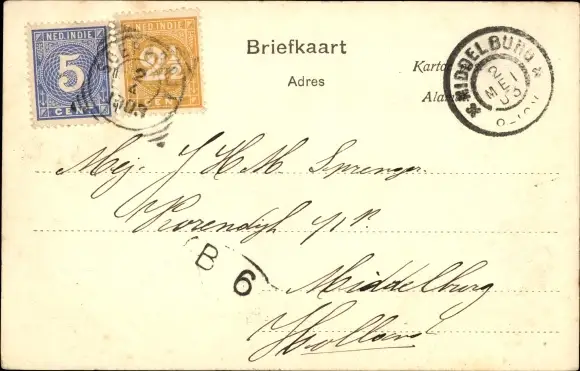 NED. INDIE
5
CENT
NED. INDIE
2½
CENT
Briefkaart
Adres
Karto
Alam
MIDDELBURG
2 MEI 03
Mej. J H M Sprenger
Middelburg
Holland
B 6